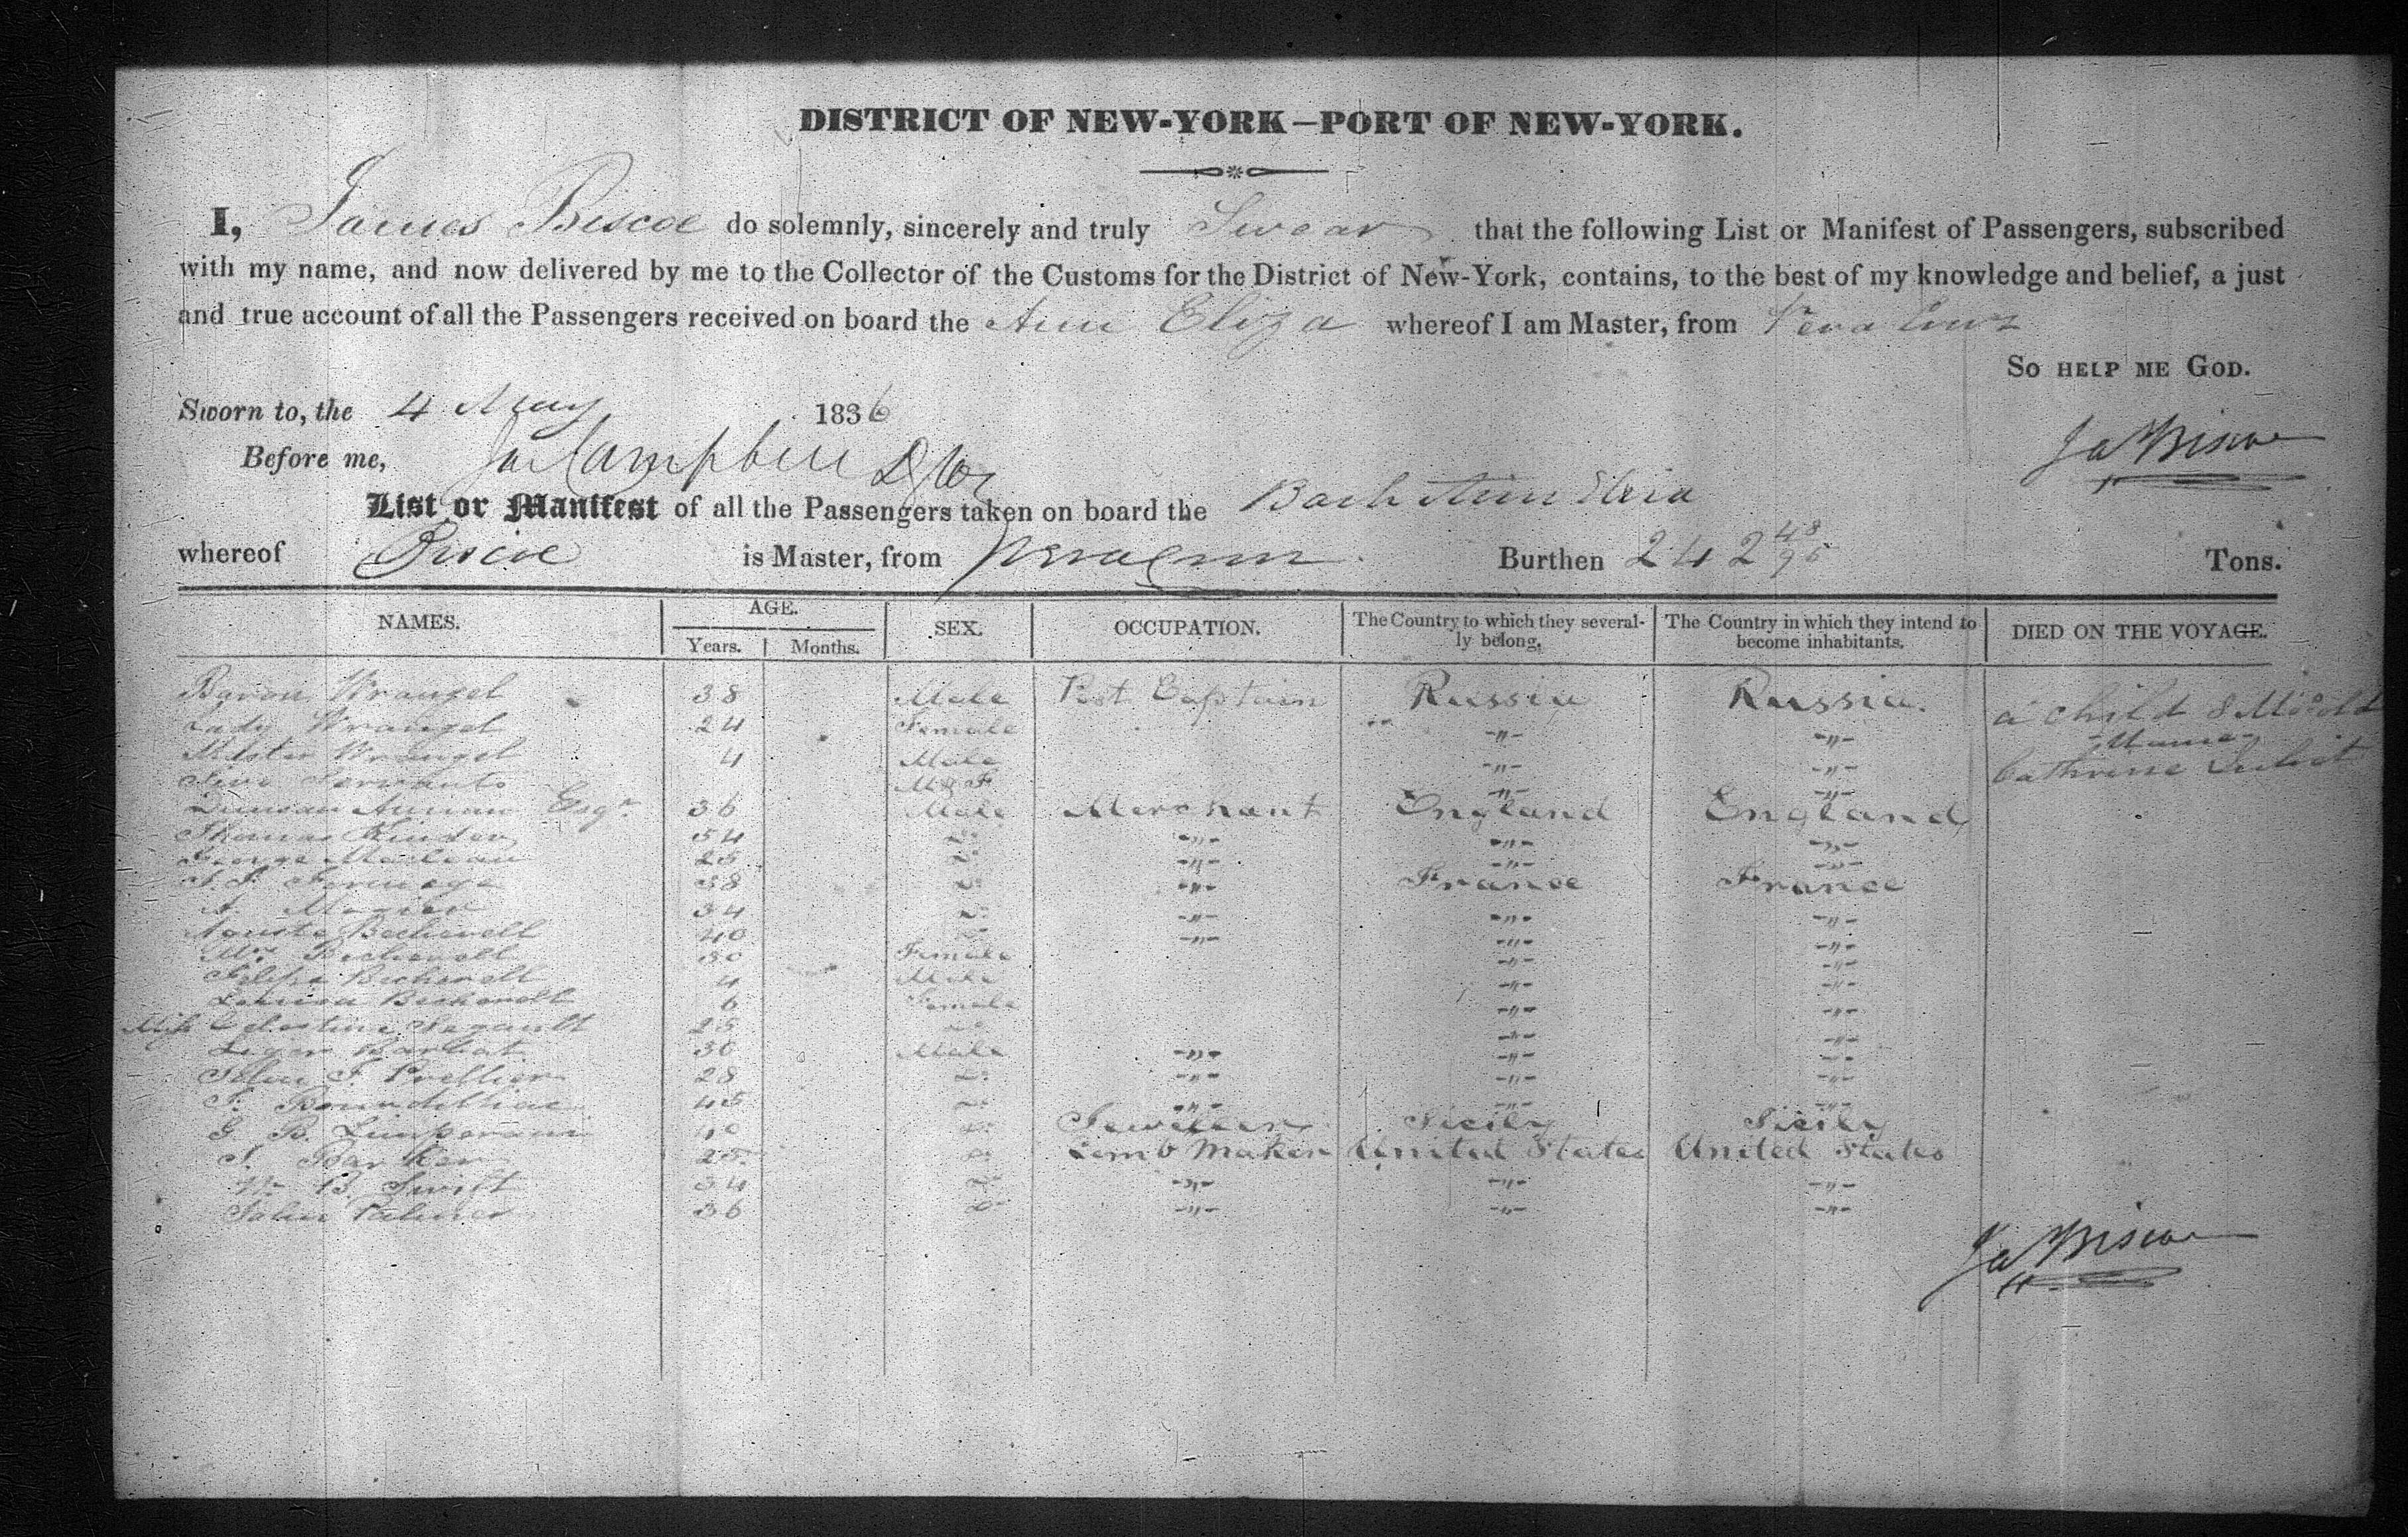 DISTRICT OF NEW-YORK—PORT OF NEW-YORK.
I, James Biscoe do solemnly, sincerely and truly Swear that the following List or Manifest of Passengers, subscribed
with my name, and now delivered by me to the Collector of the Customs for the District of New-York, contains, to the best of my knowledge and belief, a just
and true account of all the Passengers received on board the Ann Eliza whereof I am Master, from Vera Cruz
So help me God.
Sworn to, the 4 May 1836
Before me, Jas Campbell
Ja Biscoe
List or Manifest of all the Passengers taken on board the Bark Ann Eliza
whereof Biscoe is Master, from Vera Cruz Burthen 242 48/95 Tons.
NAMES. AGE. Years. Months. SEX. OCCUPATION. The Country to which they severally belong, The Country in which they intend to become inhabitants. DIED ON THE VOYAGE.
Baron Wrangel 38 Male Post Captain Russia Russia. a child 8 Mo old
Lady Wrangel 24 Female -"- -"- Name
Master Wrangel 4 Male -"- -"- Cathrine
Two Servants M & F -"- -"-
Duncan Esqr 36 Male Merchant England England
Thomas Kinder 54 Do -"- -"- -"-
George Maclean 25 Do -"- -"- -"-
38 Do -"- France France
A. 34 Do -"- -"- -"-
Aguste Becherell 40 Do -"- -"- -"-
Mrs Becherell 30 Female -"- -"-
Becherell 4 Male -"- -"-
Louisa Becherell 6 Female -"- -"-
Miss Celestine 25 Do -"- -"-
30 Male -"- -"- -"-
John F. 28 Do -"- -"- -"-
45 Do -"- -"- -"-
G. B. 40 Do Jeweller Sicily Sicily
Barker 25 Do Comb Maker United States United States
B. Swift 34 Do -"- -"- -"-
John Palmer 36 Do -"- -"- -"-
Ja Biscoe